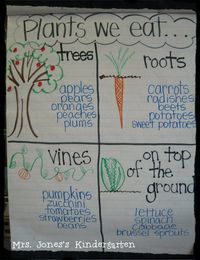 Plants we eat...
trees
apples
pears
oranges
peaches
plums
roots
carrots
radishes
beets
potatoes
sweet potatoes
vines
pumpkins
zucchini
tomatoes
strawberries
beans
on top
of the
ground
lettuce
spinach
cabbage
brussel sprouts
Mrs. Jones's Kindergarten